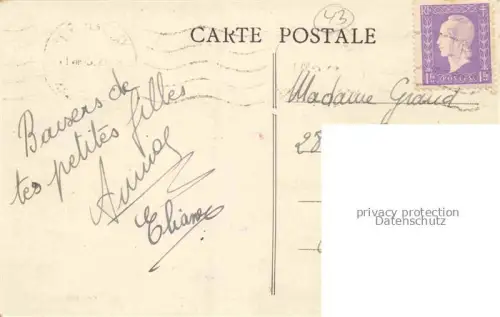 CARTE POSTALE
43
Baisers de
tes petites filles
Eliane
Madame Graud
28
privacy protection
Datenschutz